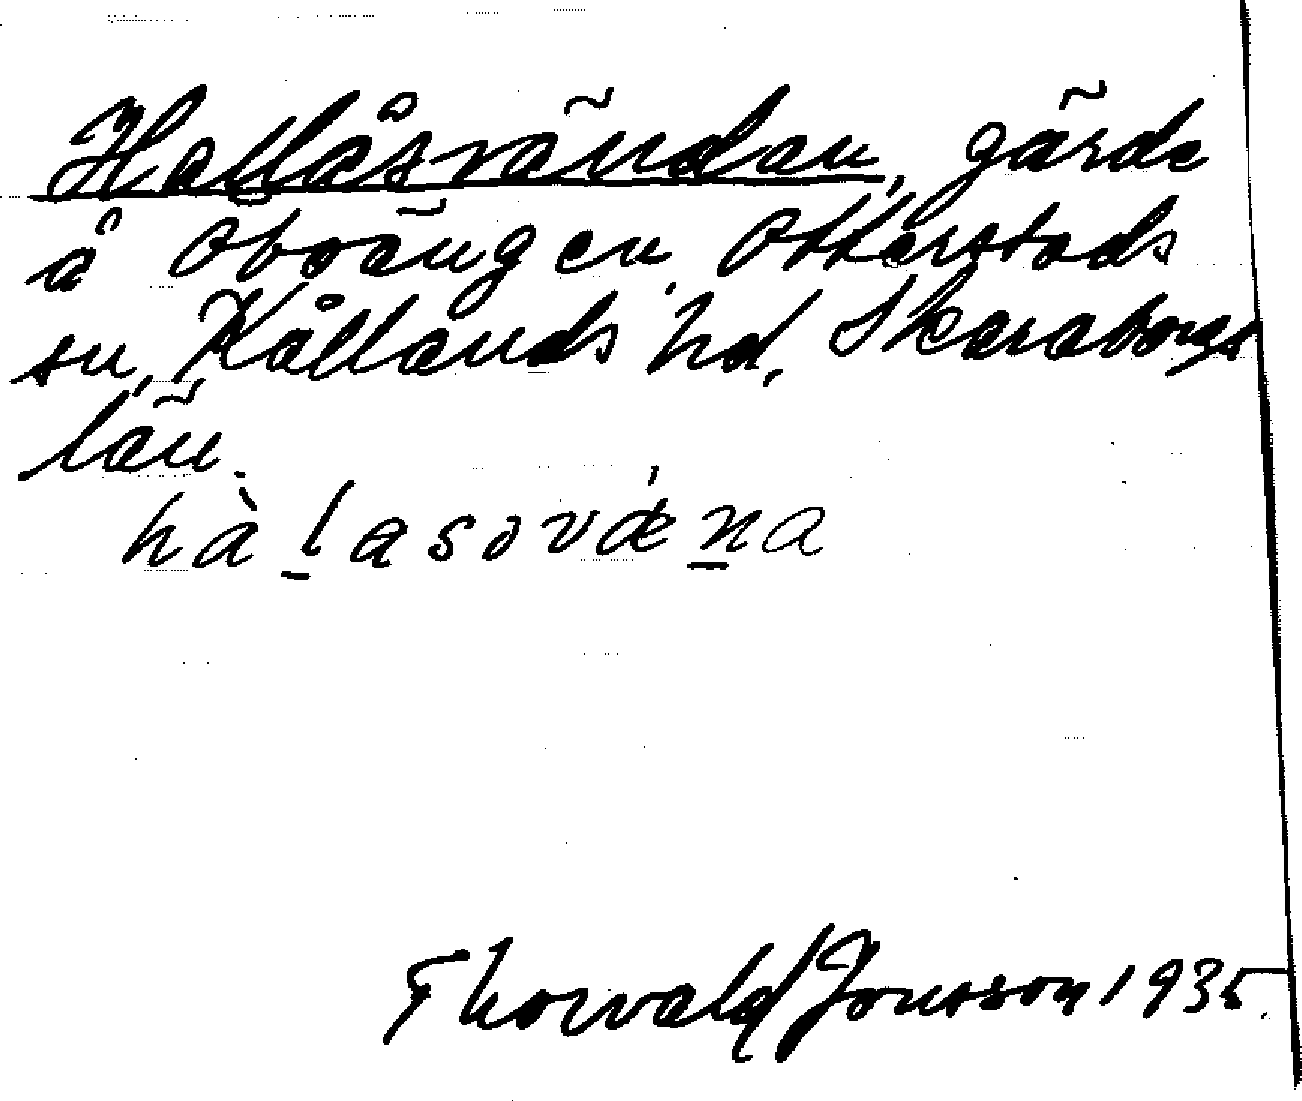 Hallåsvändan, gärde
å Oboängen, Otterstads
sn, Kållands hd, Skaraborgs
län.
hàḻasovǽṉa
Thorvald Jonsson 1935.